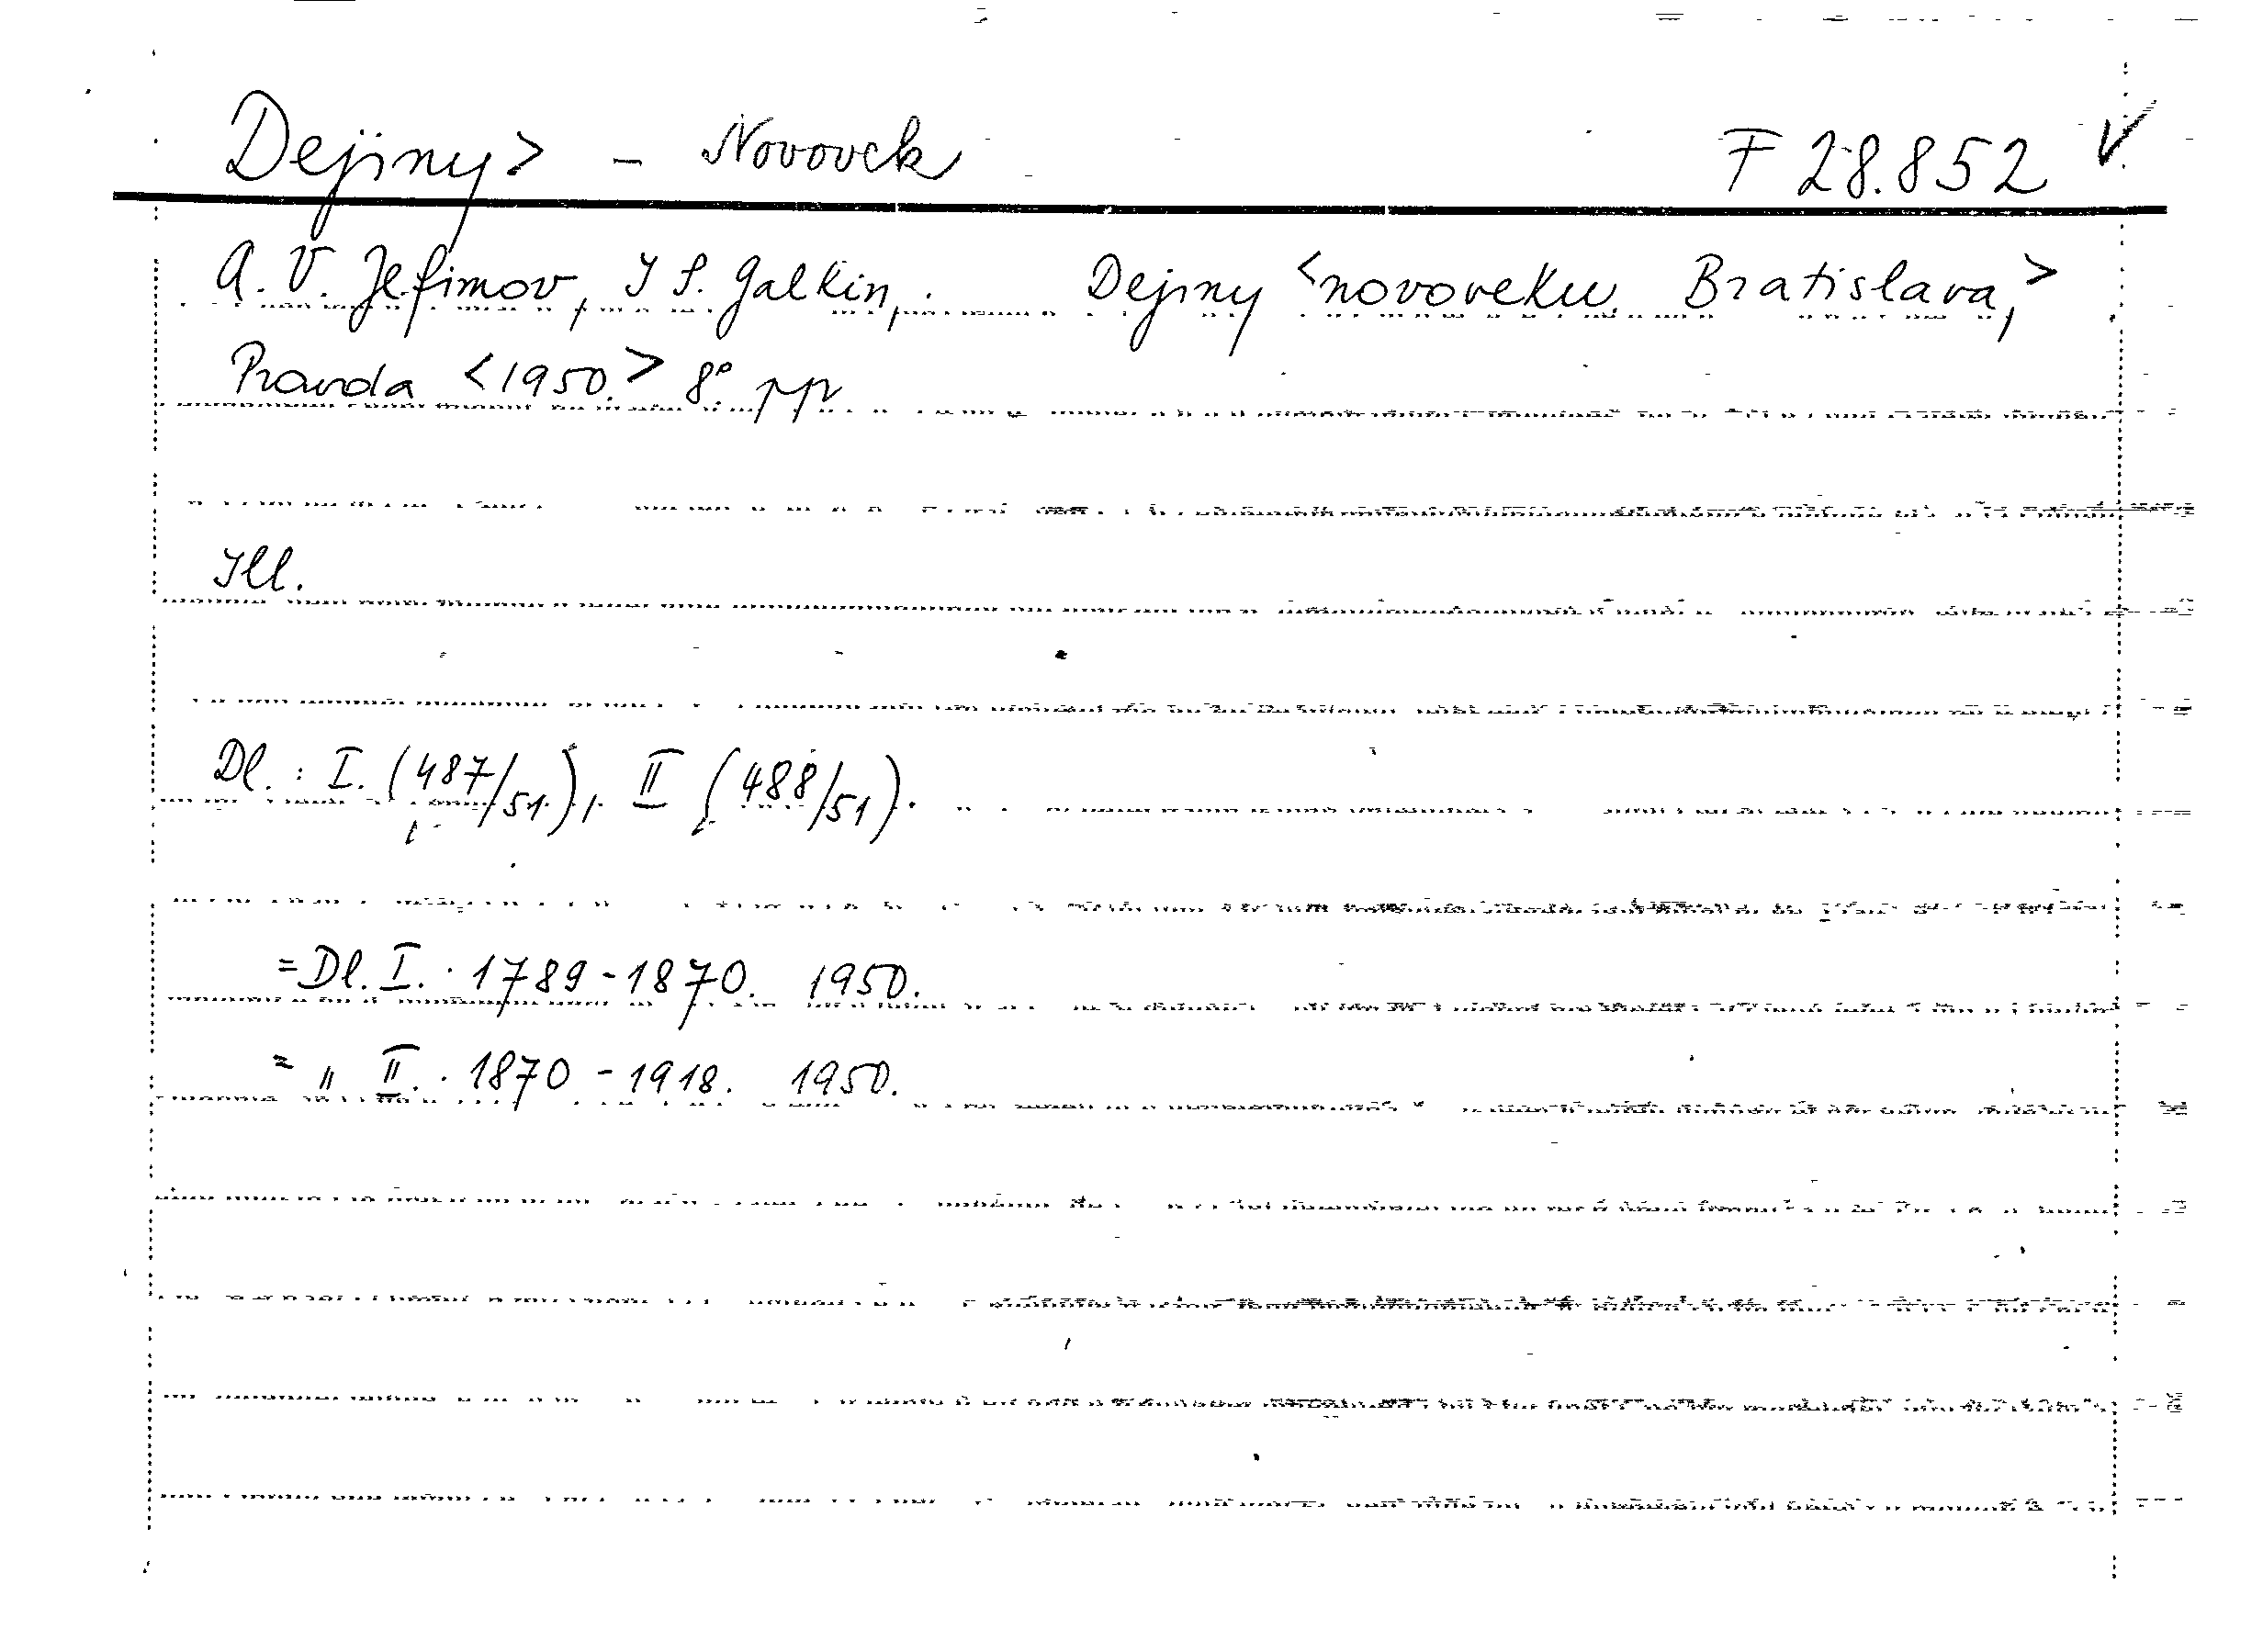 Dejiny> - Novovek F 28.852 V.
A. V. Jefimov, I S. Galkin, : Dejiny <novoveku. Bratislava,>
Pravda <1950.> 8° pp
Ill.
Dl. : I. (487/51), II (488/51).
= Dl. I. · 1789-1870. 1950.
= " II. · 1870-1918. 1950.